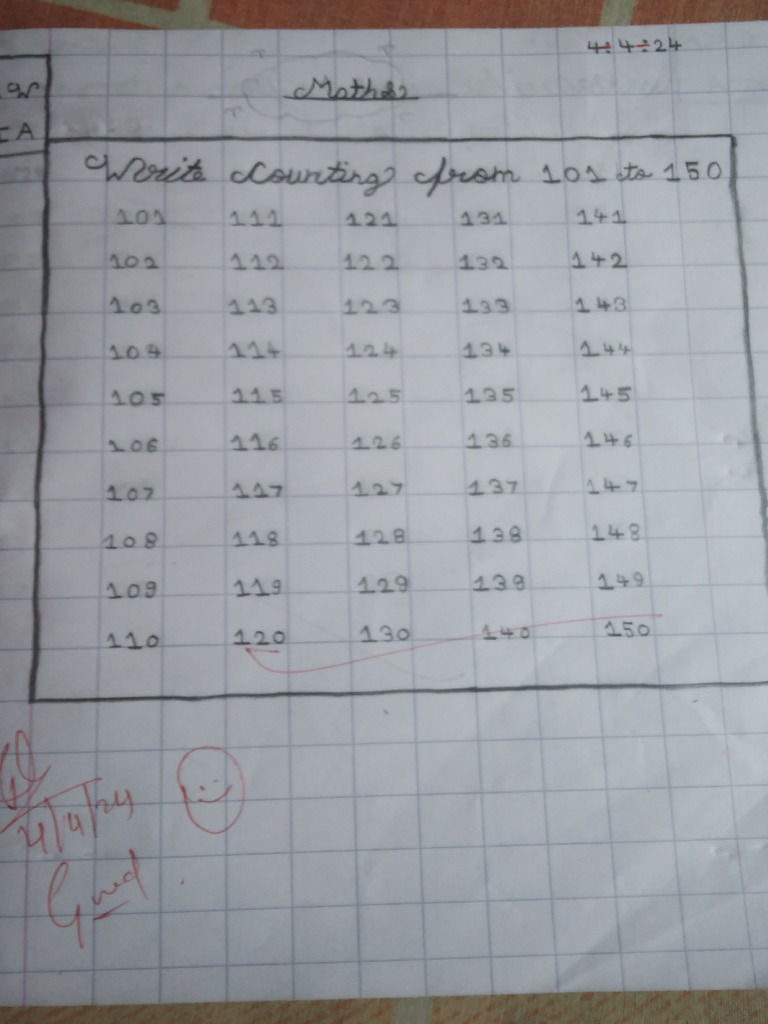 4÷4÷24
Maths
C.W
I A
Write Counting from 101 to 150
101 111 121 131 141
102 112 122 132 142
103 113 123 133 143
104 114 124 134 144
105 115 125 135 145
106 116 126 136 146
107 117 127 137 147
108 118 128 138 148
109 119 129 139 149
110 120 130 140 150
4/4/24
Good